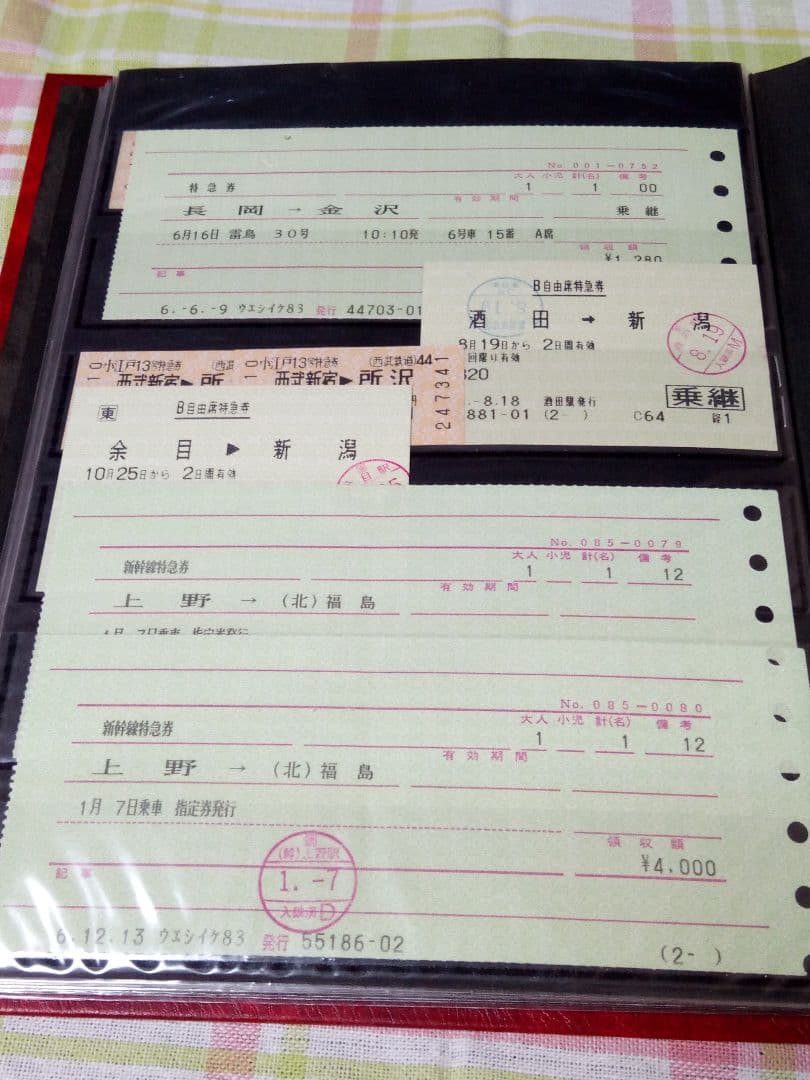 No. 001-0752
大人 小児 計(名) 備考
特急券 1 1 00
有効期間
長岡 → 金沢 乗継
6月16日 雷鳥 30号 10:10発 6号車 15番 A席
領収額
¥1,280
記事
6.-6.-9 ウエシイケ83 発行 44703-01
B自由席特急券
酒田 → 新潟
8月19日から 2日間有効
回限り有効
320
8.19
.-8.18 酒田駅発行
881-01 (2- ) C64
乗継
経1
小江戸13号特急券 (西武
西武新宿▶所
小江戸13号特急券 (西武鉄道)44
西武新宿▶所沢
247341
東 B自由席特急券
余目 ▶ 新潟
10月25日から 2日間有効
No. 085-0079
大人 小児 計(名) 備考
新幹線特急券 1 1 12
有効期間
上野 → (北)福島
1月 7日乗車 指定券発行
No. 085-0080
大人 小児 計(名) 備考
新幹線特急券 1 1 12
有効期間
上野 → (北)福島
1月 7日乗車 指定券発行
領収額
¥4,000
記事
(幹)上野駅
1.-7
入鋏済D
6.12.13 ウエシイケ83 発行 55186-02
(2- )